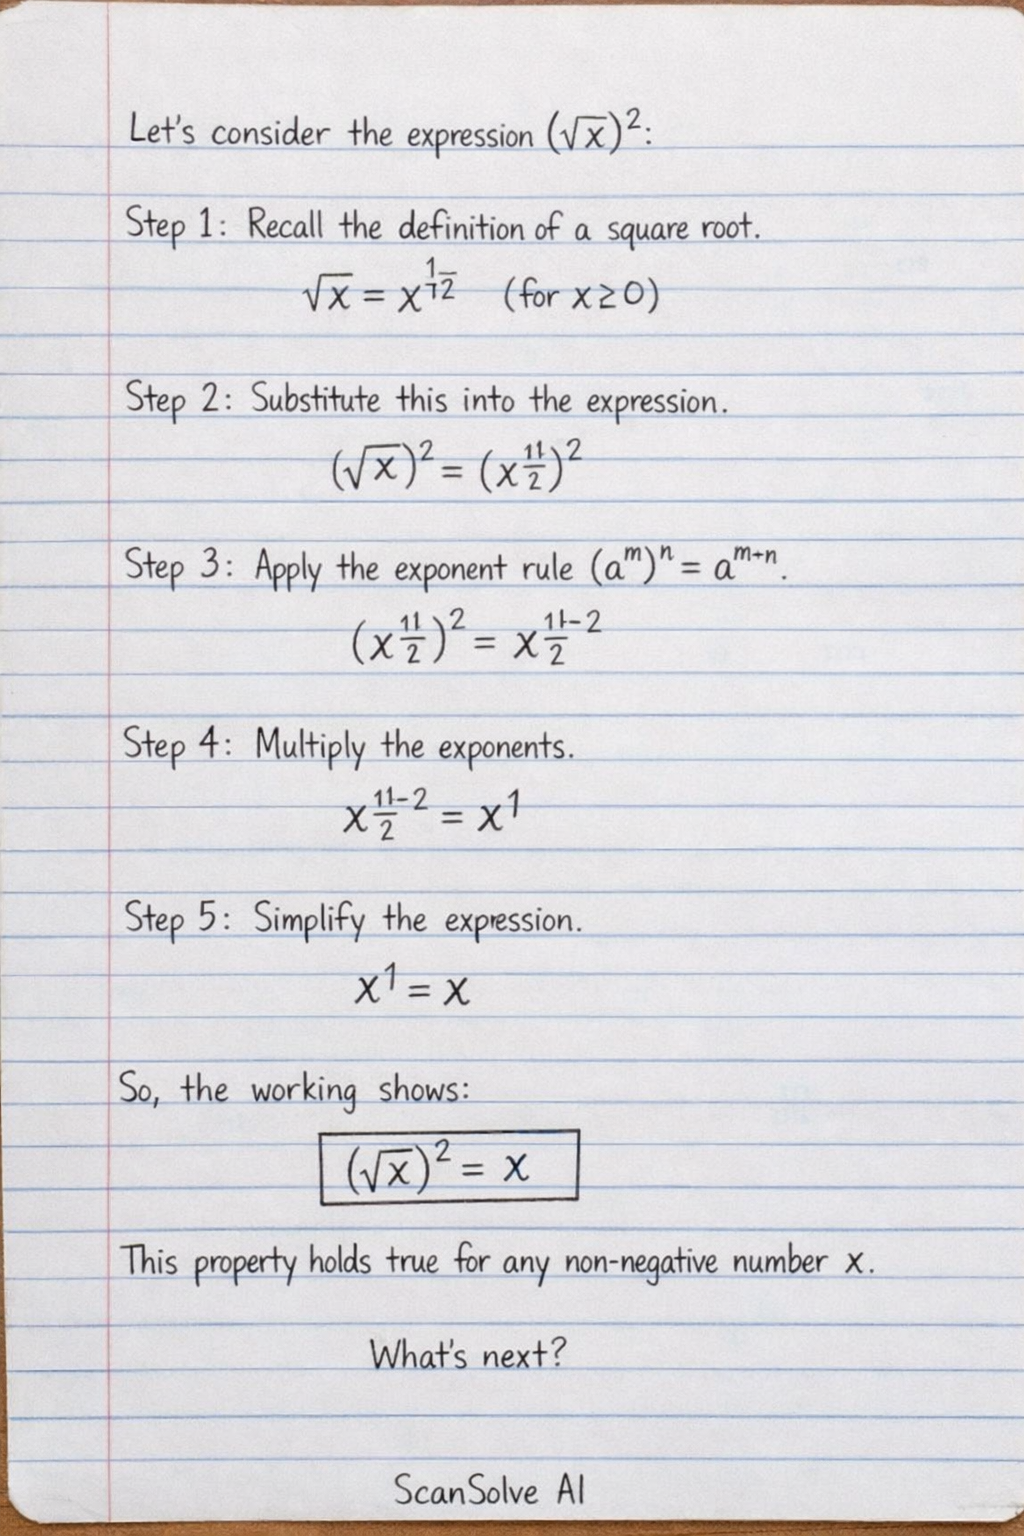 Let's consider the expression (√x)²:
Step 1: Recall the definition of a square root.
√x = x^(1/12) (for x ≥ 0)
Step 2: Substitute this into the expression.
(√x)² = (x^(11/2))²
Step 3: Apply the exponent rule (a^m)^n = a^(m+n).
(x^(11/2))² = x^(11/2)-2
Step 4: Multiply the exponents.
x^(11/2)-2 = x¹
Step 5: Simplify the expression.
x¹ = x
So, the working shows:
(√x)² = x
This property holds true for any non-negative number x.
What's next?
ScanSolve AI